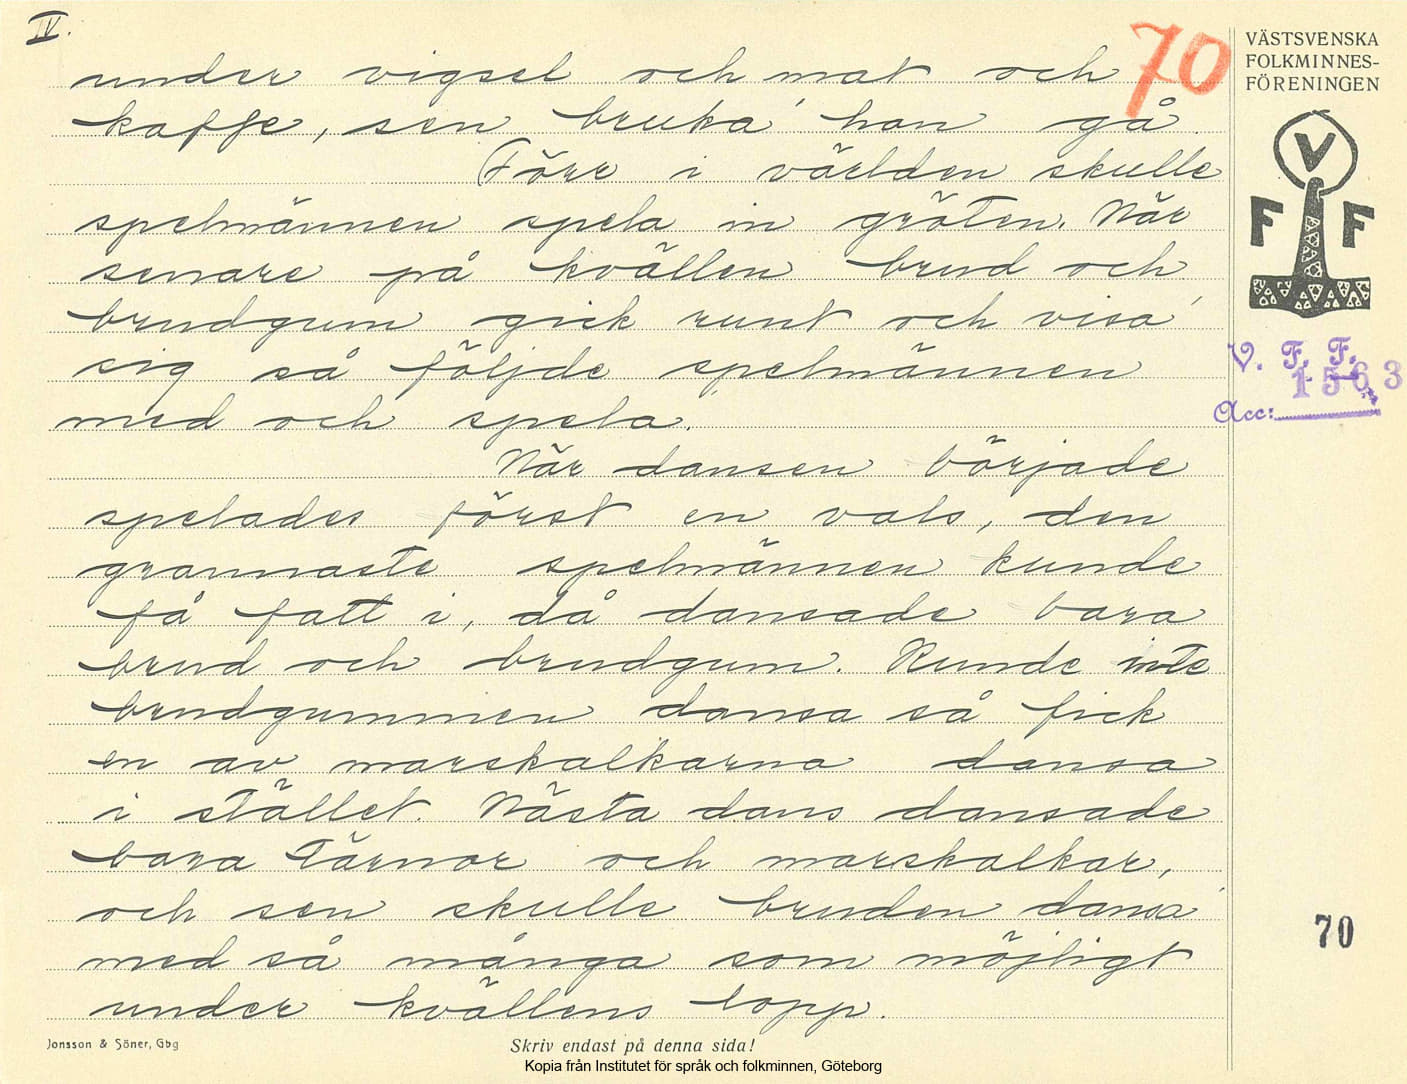 IV.
70
under vigsel och mat och
kaffe, sen bruka' han gå.
(Förr i världen skulle
spelmännen spela in gröten. När
senare på kvällen brud och
brudgum gick runt och visa'
sig så följde spelmännen
med och spela'.
När dansen började
spelades först en vals, den
grannaste spelmännen kunde
få fatt i, då dansade bara
brud och brudgum. Kunde inte
brudgummen dansa så fick
en av marskalkarna dansa
i stället. Nästa dans dansade
bara tärnor och marskalkar,
och sen skulle bruden dansa
med så många som möjligt
under kvällens lopp.
VÄSTSVENSKA
FOLKMINNES-
FÖRENINGEN
V
F F
V. F. F.
1563
Acc:
70
Jonsson & Söner, Gbg
Skriv endast på denna sida!
Kopia från Institutet för språk och folkminnen, Göteborg